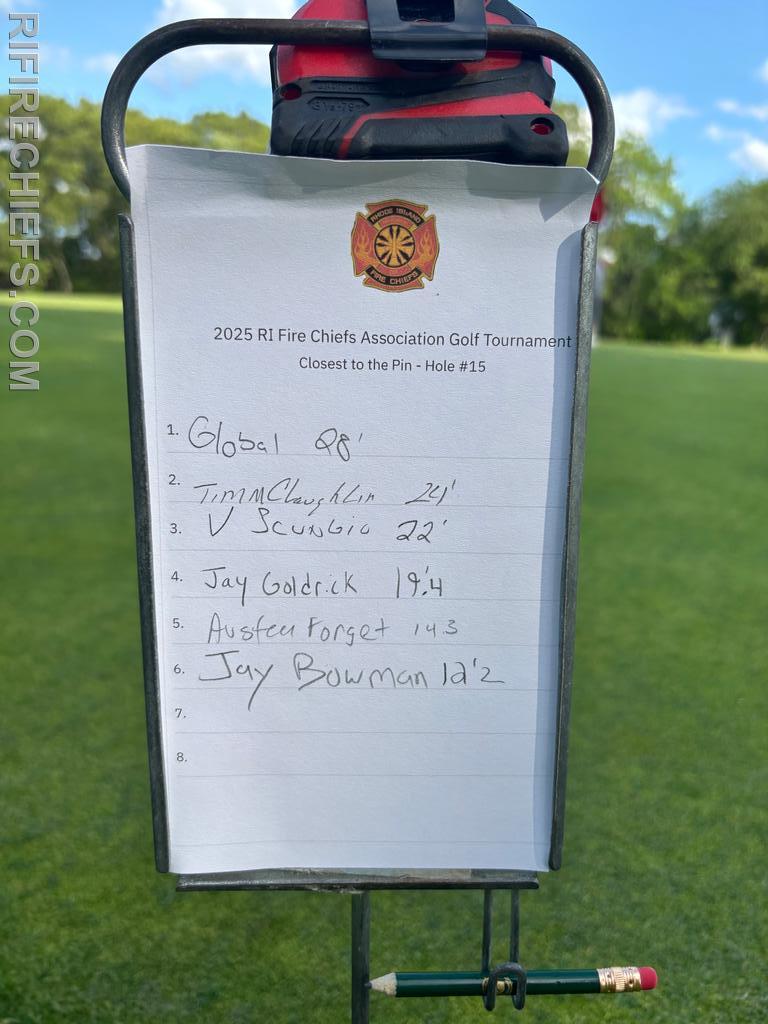 RIFIRECHIEFS.COM
RHODE ISLAND
FIRE CHIEFS
2025 RI Fire Chiefs Association Golf Tournament
Closest to the Pin - Hole #15
1. Global 28'
2. Tim McLaughlin 24'
3. V Scungio 22'
4. Jay Goldrick 19'.4
5. Austen Forget 14.3
6. Jay Bowman 12'2
7.
8.